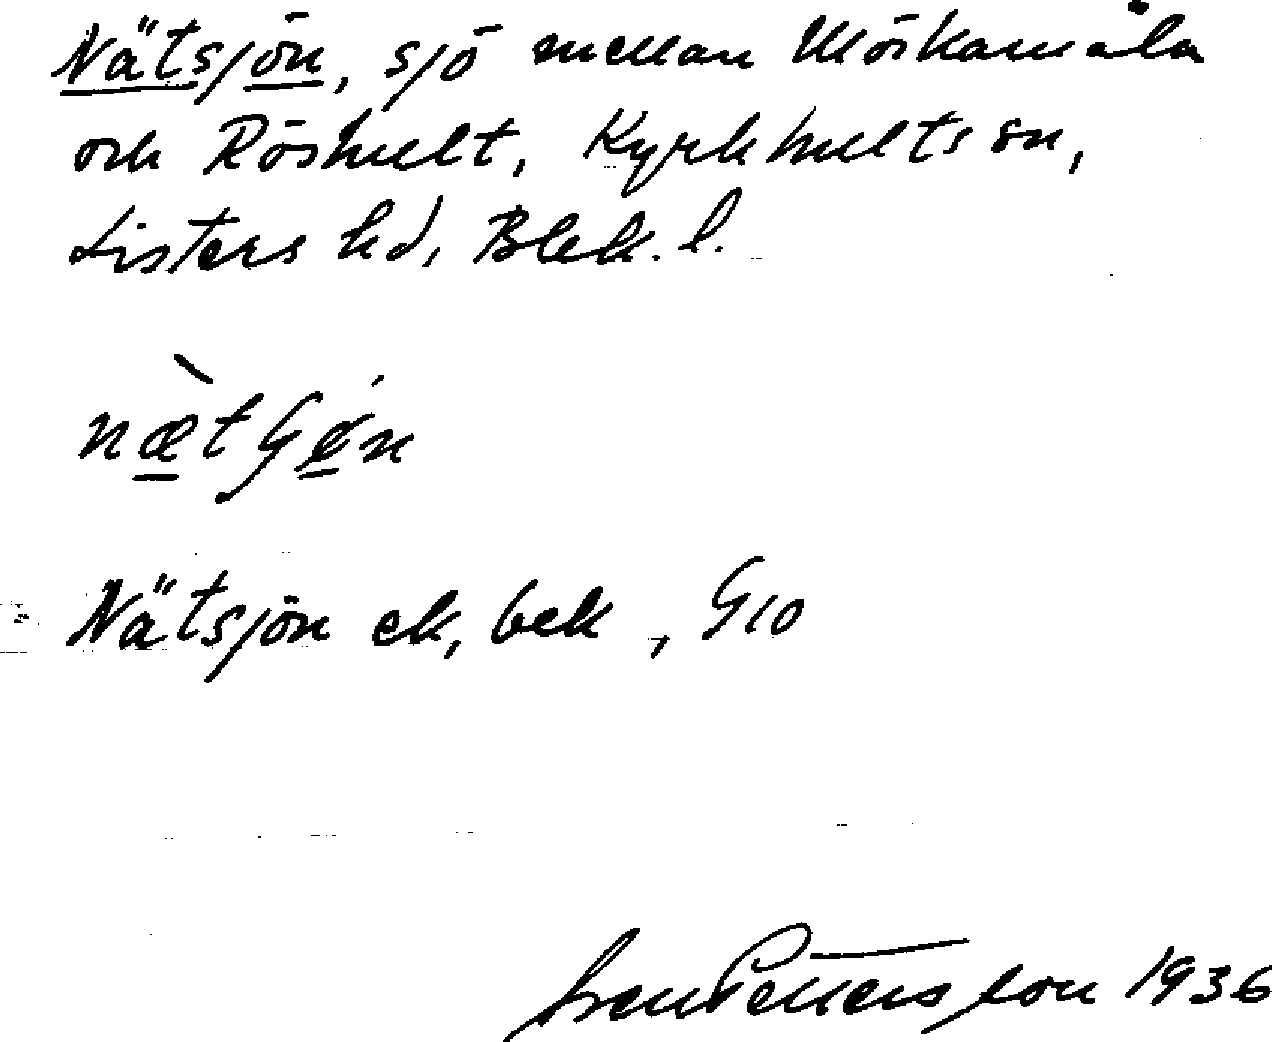 Nätsjön, sjö mellan Mörkamåla
och Röshult, Kyrkhults sn,
Listers hd, Blek. l.
Nätsjön ek, bek, G10
Sven Pettersson 1936